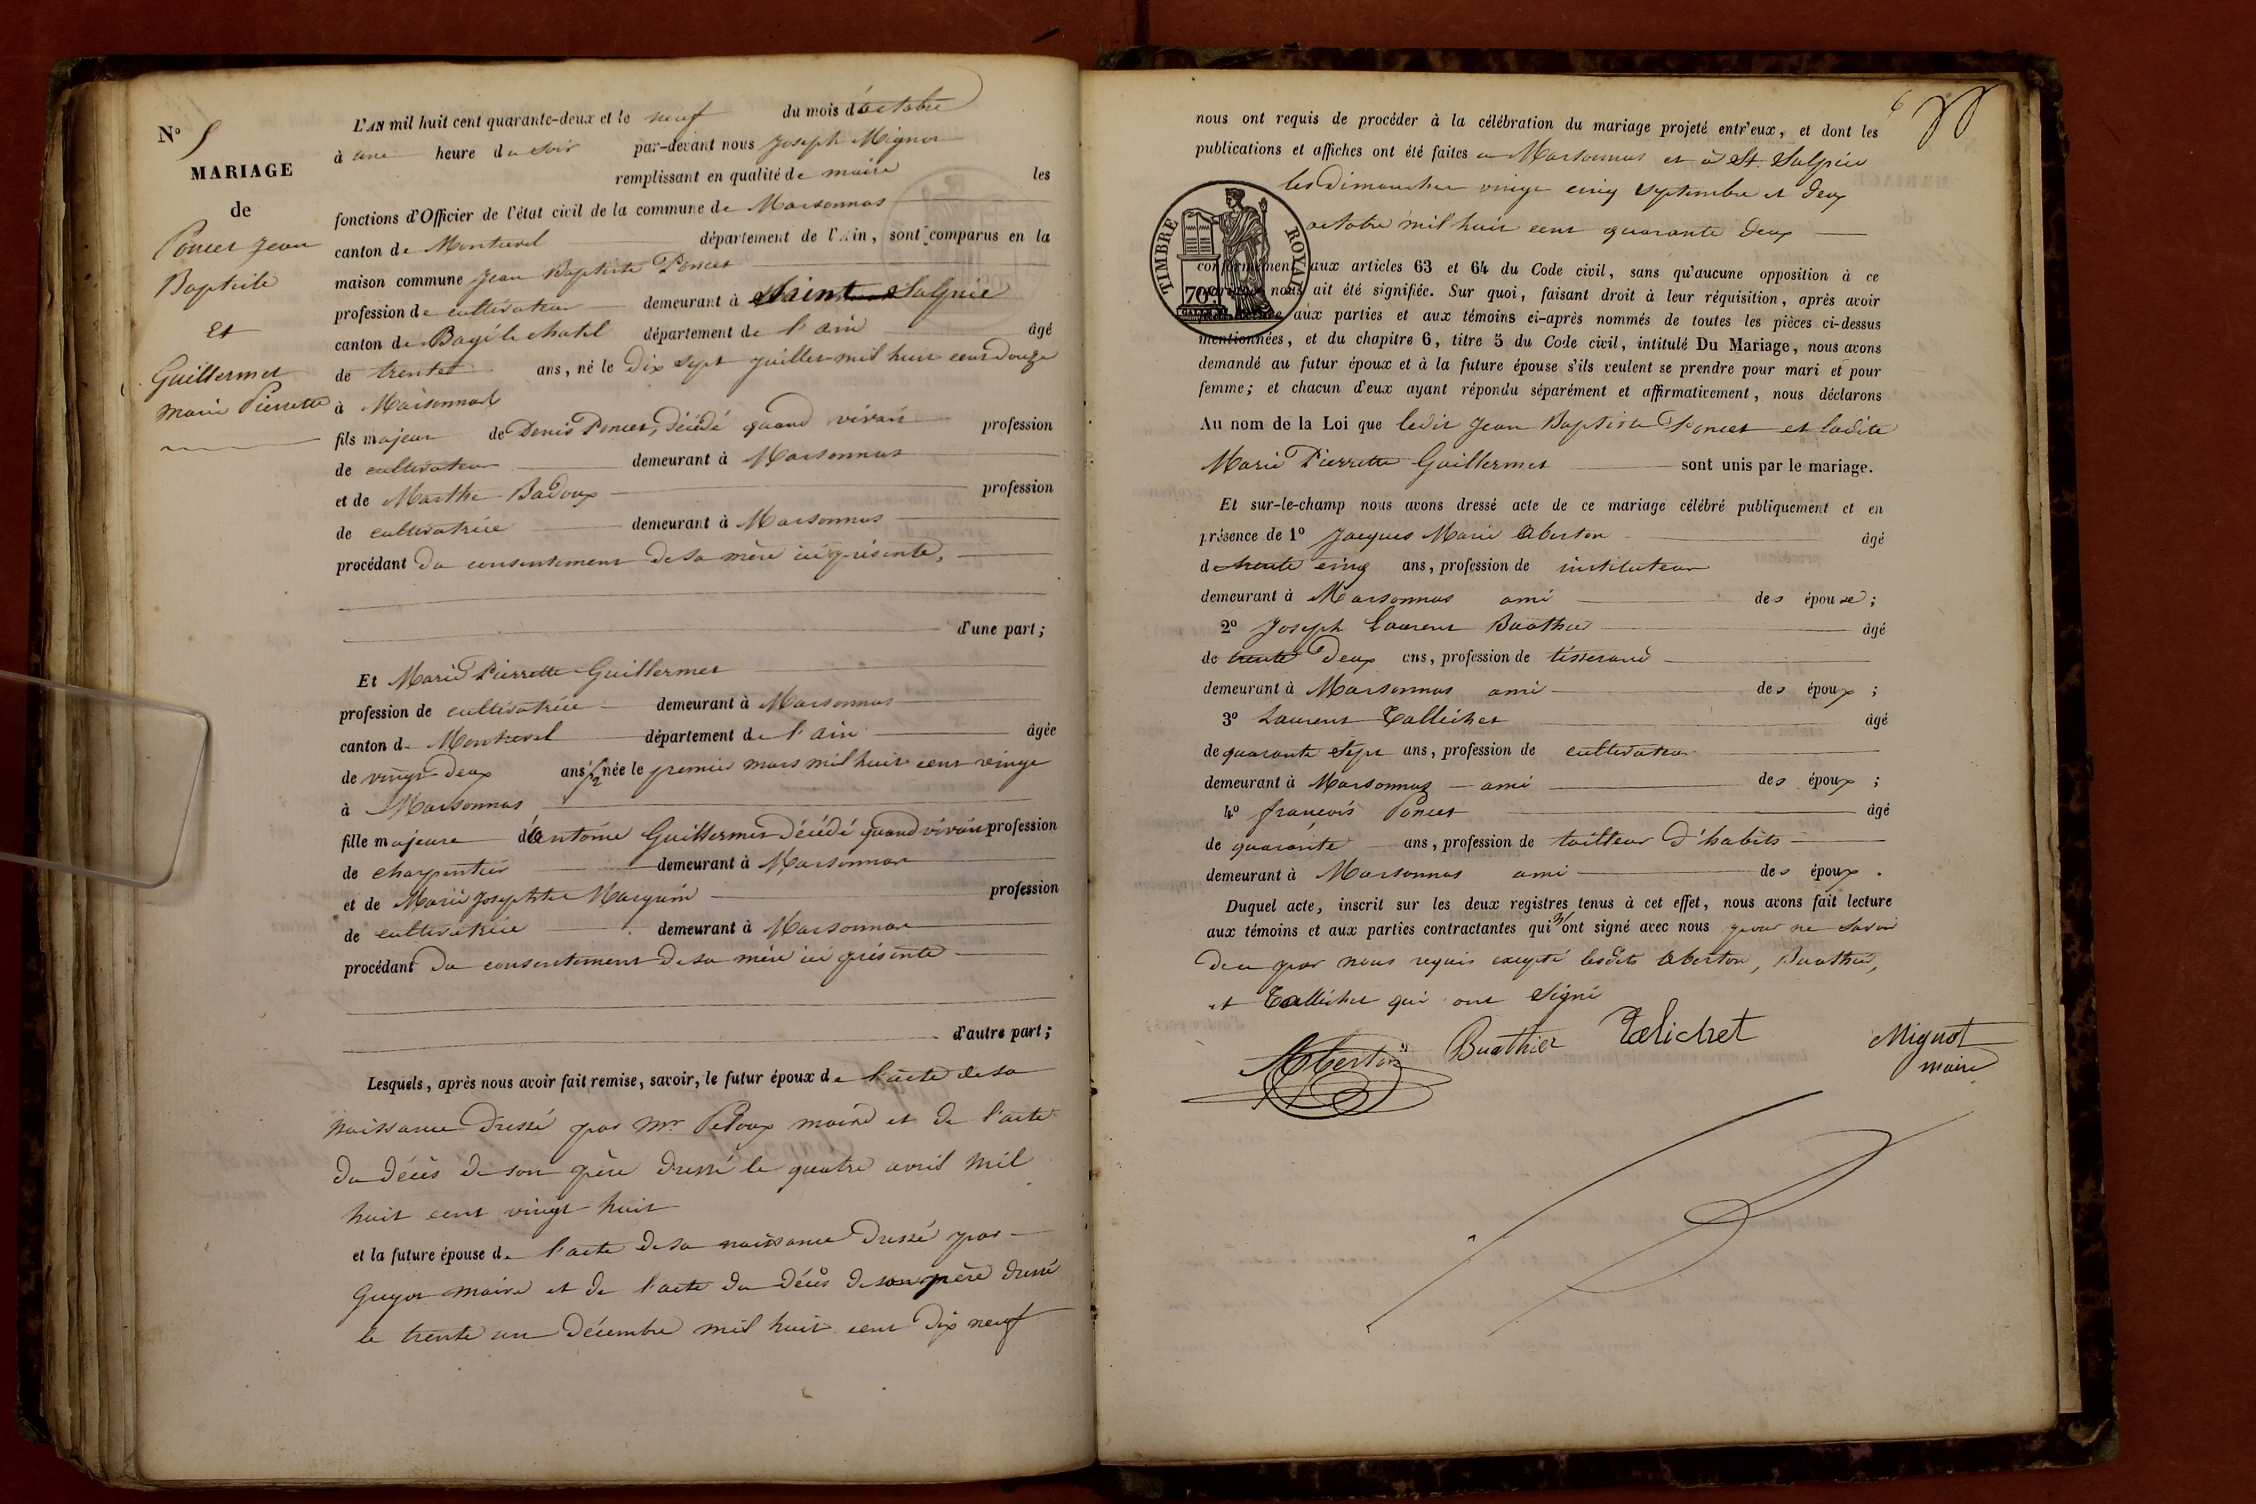 N° 5
MARIAGE
de
Poncet Jean
Baptiste
Et
Guillermet
Marie Pierrette
L'AN mil huit cent quarante-deux et le neuf du mois d'octobre
à une heure du soir par-devant nous Joseph Mignot
remplissant en qualité de maire les
fonctions d'Officier de l'état civil de la commune de Marsonnas
canton de Montrevel département de l'Ain, sont comparus en la
maison commune Jean Baptiste Poncet
profession de cultivateur demeurant à Saint Sulpice
canton de Bagé le chatel département de l'ain âgé
de trente ans, né le dix sept juillet mil huit cent douze
à Marsonnas
fils majeur de Denis Poncet, décédé quand vivait profession
de cultivateur demeurant à Marsonnas
et de Marthe Badoux profession
de cultivatrice demeurant à Marsonnas
procédant du consentement de sa mère ici présente,
d'une part;
Et Marie Pierrette Guillermet
profession de cultivatrice demeurant à Marsonnas
canton de Montrevel département de l'ain âgée
de vingt deux ans ½ née le premier mars mil huit cent vingt
à Marsonnas
fille majeure d'antoine Guillermet décédé quand vivait profession
de charpentier demeurant à Marsonnas
et de Marie Josephte Marguin profession
de cultivatrice demeurant à Marsonnas
procédant du consentement de sa mère ici présente
d'autre part;
Lesquels, après nous avoir fait remise, savoir, le futur époux de l'acte de sa
naissance dressé par Mr Pédoux maire et de l'acte
du décès de son père dressé le quatre avril mil
huit cent vingt huit
et la future épouse de l'acte de sa naissance dressé par
Guyot maire et de l'acte du décès de son père dressé
le trente un décembre mil huit cent dix neuf
6
nous ont requis de procéder à la célébration du mariage projeté entr'eux, et dont les
publications et affiches ont été faites a Marsonnas et à St Sulpice
les dimanches vingt cinq septembre et deux
octobre mil huit cent quarante deux
TIMBRE ROYAL
70c
conformément aux articles 63 et 64 du Code civil, sans qu'aucune opposition à ce
nous ait été signifiée. Sur quoi, faisant droit à leur réquisition, après avoir
aux parties et aux témoins ci-après nommés de toutes les pièces ci-dessus
mentionnées, et du chapitre 6, titre 5 du Code civil, intitulé Du Mariage, nous avons
demandé au futur époux et à la future épouse s'ils veulent se prendre pour mari et pour
femme; et chacun d'eux ayant répondu séparément et affirmativement, nous déclarons
Au nom de la Loi que ledit Jean Baptiste Poncet et ladite
Marie Pierrette Guillermet sont unis par le mariage.
Et sur-le-champ nous avons dressé acte de ce mariage célébré publiquement et en
présence de 1° Jacques Marie Aberton âgé
de trente cinq ans, profession de instituteur
demeurant à Marsonnas ami des époux;
2° Joseph Laurent Buathier âgé
de trente deux ans, profession de tisserand
demeurant à Marsonnas ami des époux;
3° Laurent Tallichet âgé
de quarante sept ans, profession de cultivateur
demeurant à Marsonnas ami des époux;
4° françois Poncet âgé
de quarante ans, profession de tailleur d'habits
demeurant à Marsonnas ami des époux.
Duquel acte, inscrit sur les deux registres tenus à cet effet, nous avons fait lecture
aux témoins et aux parties contractantes qui n'ont signé avec nous pour ne savoir
de ce par nous requis excepté lesdits Aberton, Buathier,
et Tallichet qui ont signé
Aberton Buathier Talichet Mignot
maire